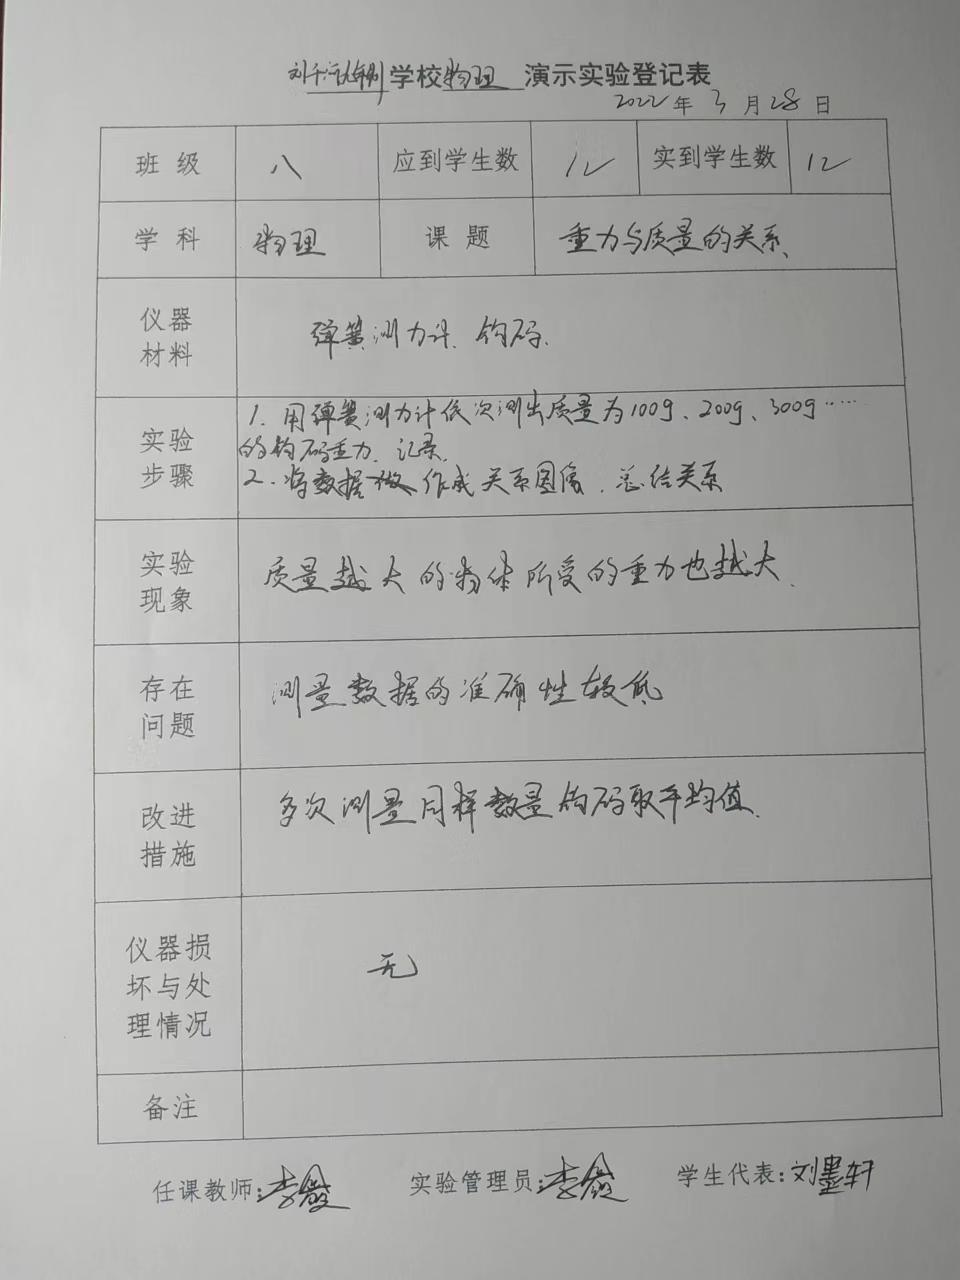 学校物理 演示实验登记表
2022年3月28日
班 级 八 应到学生数 12 实到学生数 12
学 科 物理 课 题 重力与质量的关系
仪器
材料
弹簧测力计、钩码.
实验
步骤
1. 用弹簧测力计依次测出质量为100g、200g、300g……
的钩码重力、记录.
2. 将数据 作成关系图像、总结关系
实验
现象
质量越大的物体所受的重力也越大.
存在
问题
测量数据的准确性较低
改进
措施
多次测量同样数量钩码取平均值.
仪器损
坏与处
理情况
无
备注
任课教师: 李 实验管理员: 李 学生代表: 刘墨轩